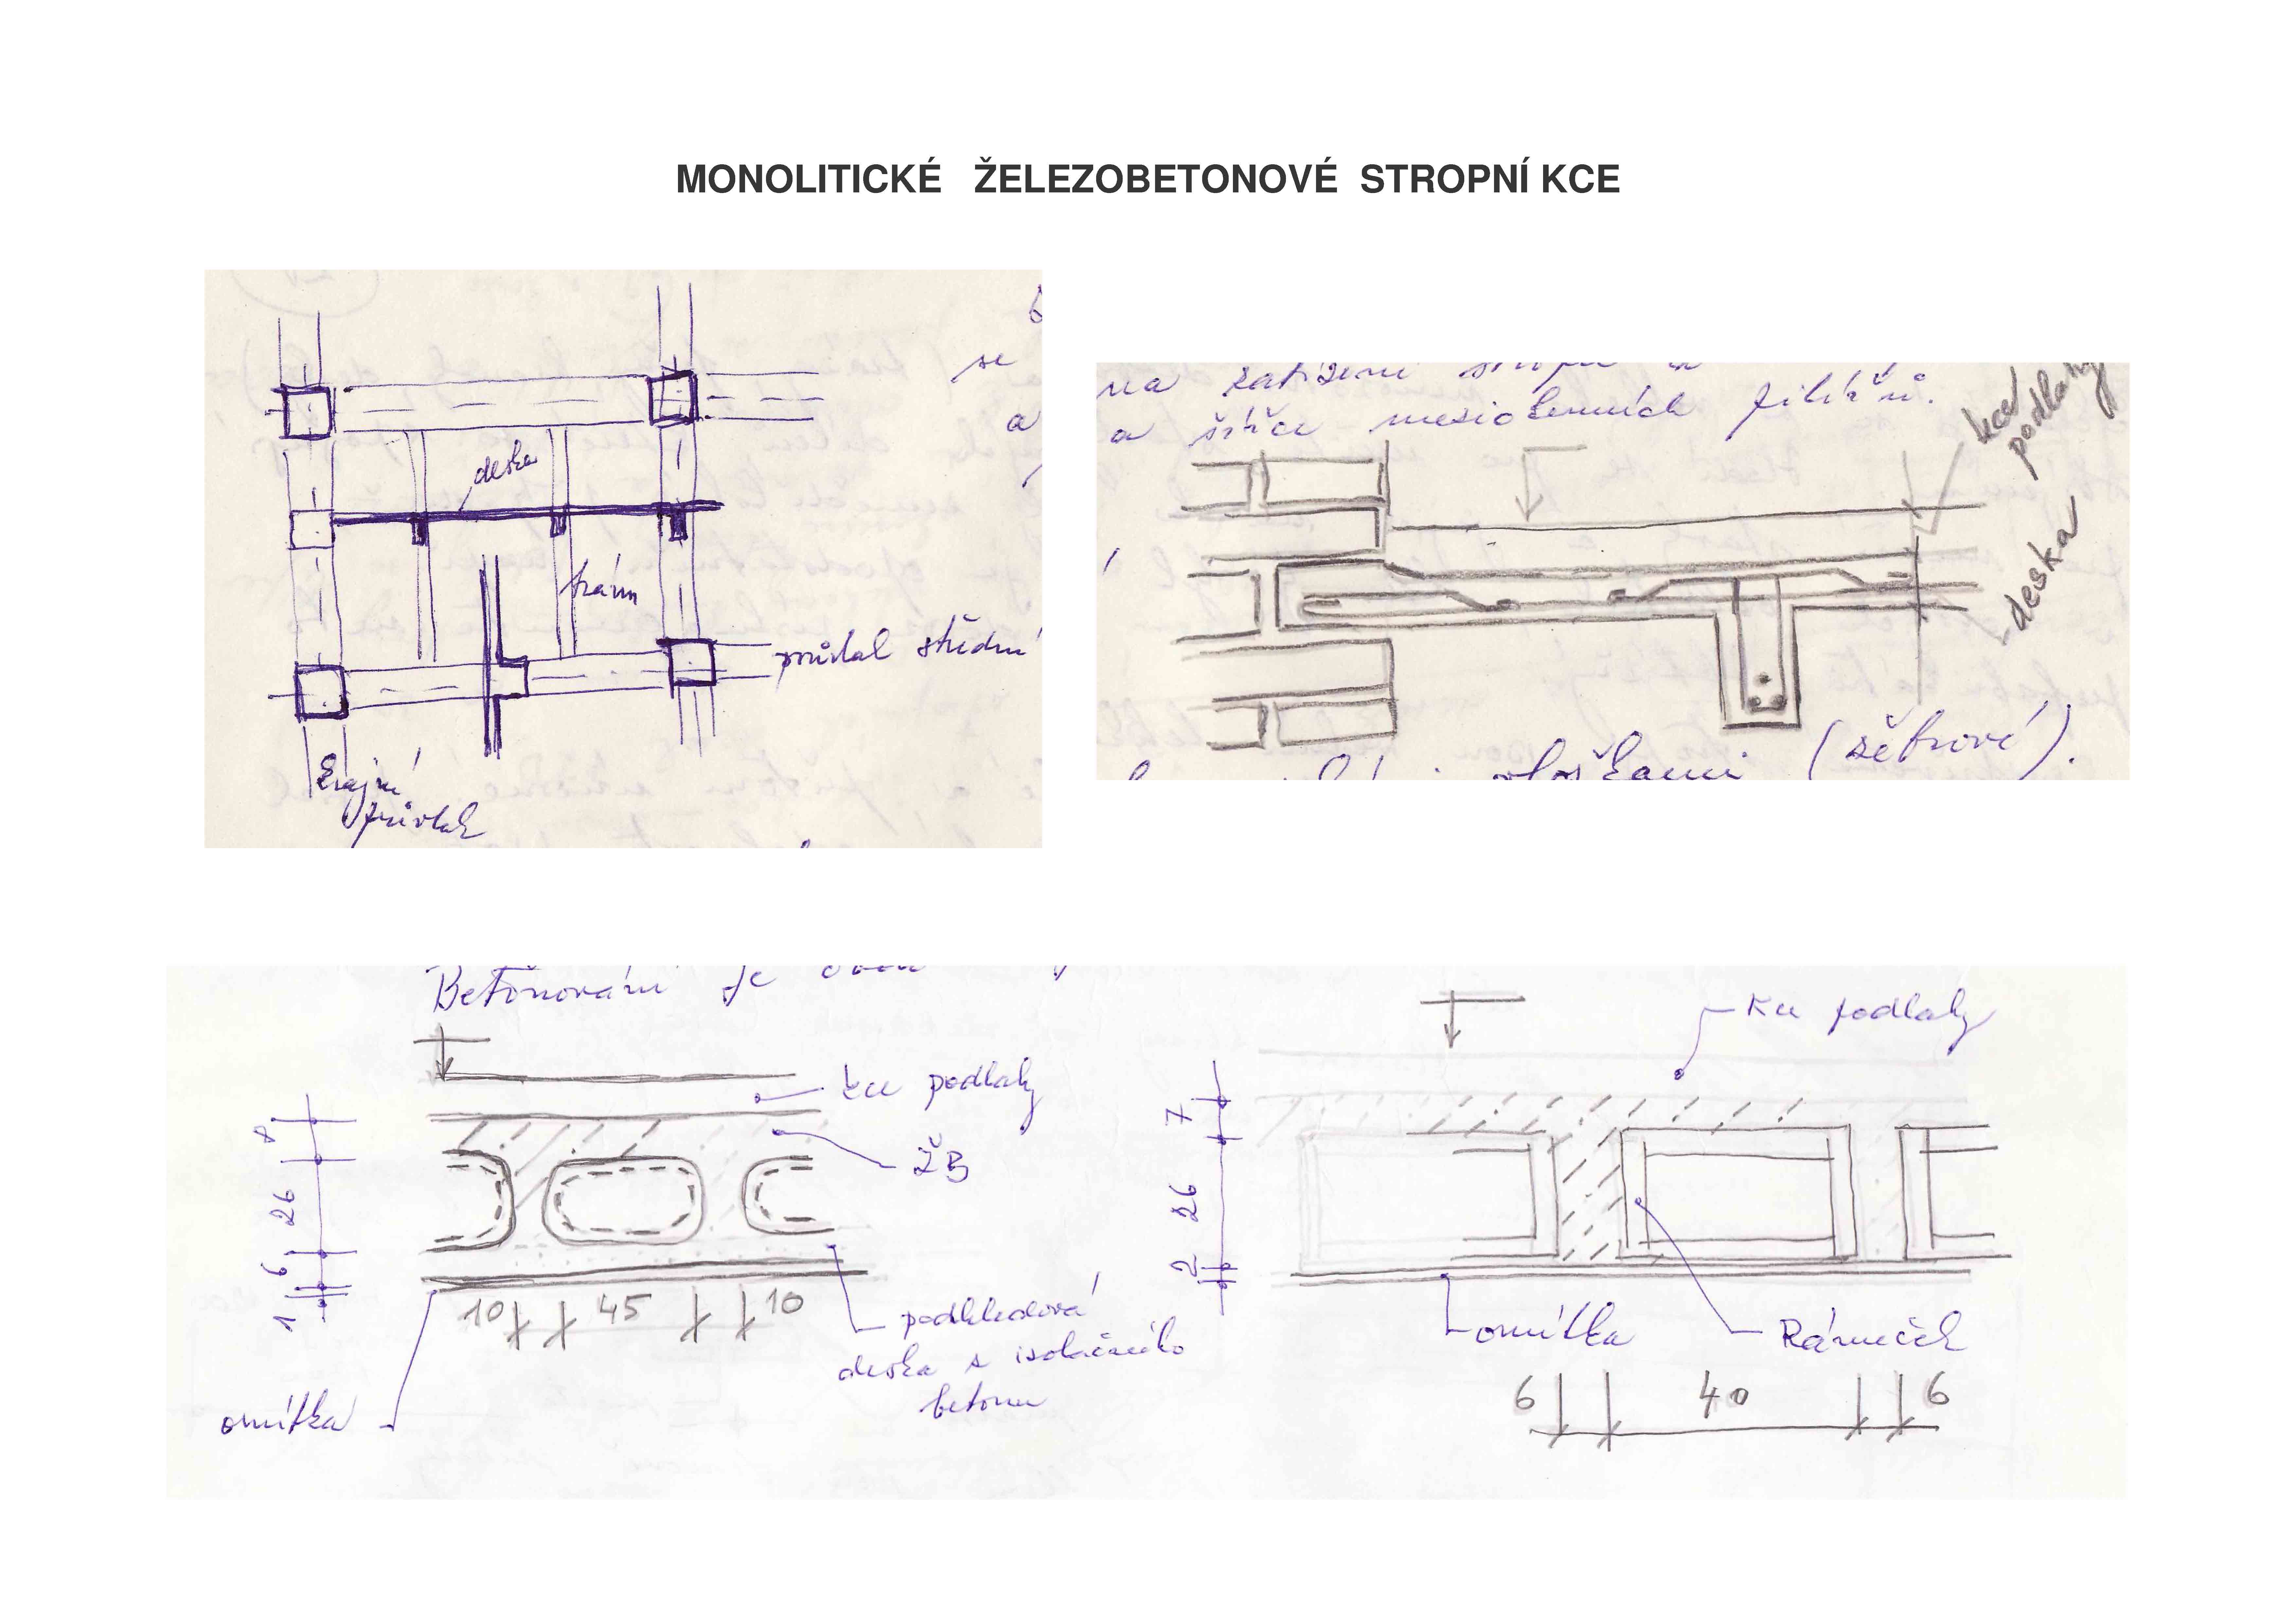 MONOLITICKÉ ŽELEZOBETONOVÉ STROPNÍ KCE
se
a
deska
trám
průvlak střední
krajní
průvlak
na zatížení stropu
a šířce meziokenních pilířů.
kce
podlahy
deska
vložkami (žebrové).
Betonování je
kce podlahy
ŽB
8
26
6
1
10 45 10
podhledová
deska z izolačního
betonu
omítka
kce podlahy
7
26
2
omítka
Rámeček
6 40 6